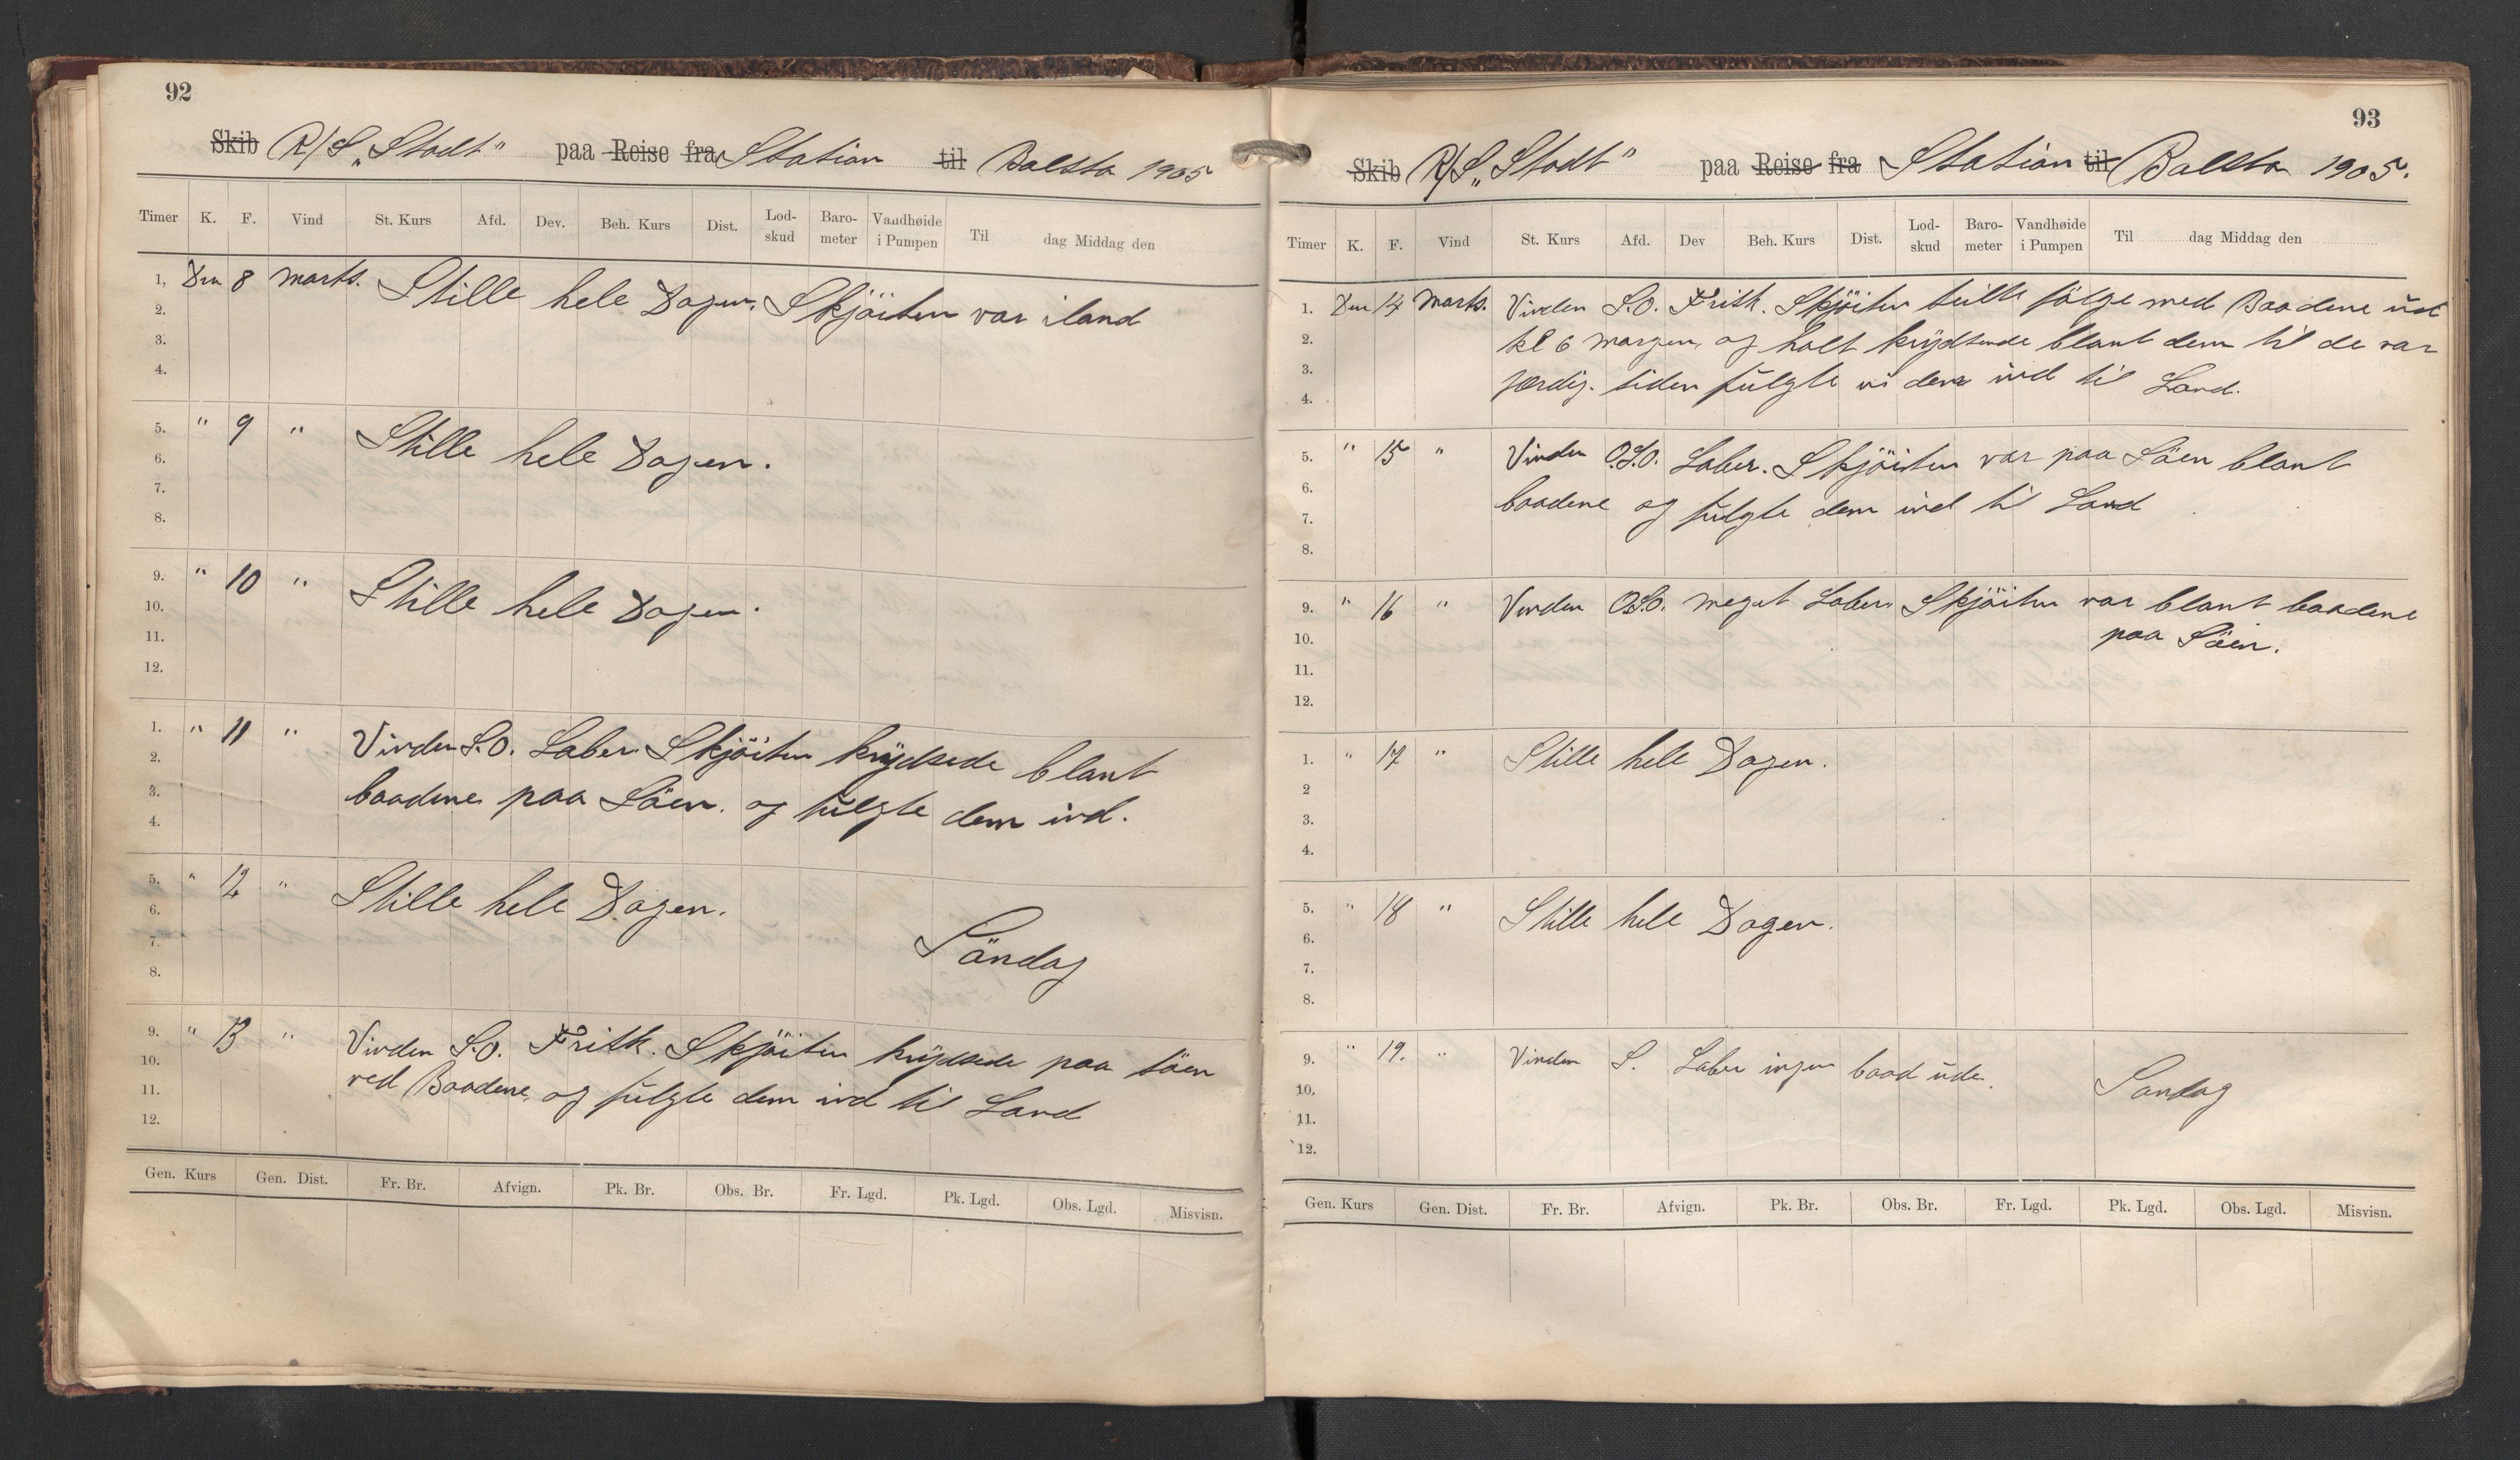 92
Skib R/S „Stadt" paa Reise fra Station til Balsta 1905
Timer K. F. Vind St. Kurs Afd. Dev. Beh. Kurs Dist. Lod-skud Baro-meter Vandhøide i Pumpen Til dag Middag den
1. Den 8 Marts. Stille hele Dagen. Skjöiten var iland
2.
3.
4.
5. " 9 " Stille hele Dagen.
6.
7.
8.
9. " 10 " Stille hele Dagen.
10.
11.
12.
1. " 11 " Vinden S.O. Laber. Skjöiten krydsede blant
2.
3. baadene paa Söen. og fulgte dem ind.
4.
5. " 12 " Stille hele Dagen.
6.
7. Söndag
8.
9. " 13 " Vinden S.O. Frisk. Skjöiten krydsede paa söen
10.
11. ved Baadene, og fulgte dem ind til Land
12.
Gen. Kurs Gen. Dist. Fr. Br. Afvign. Pk. Br. Obs. Br. Fr. Lgd. Pk. Lgd. Obs. Lgd. Misvisn.
93
Skib R/S „Stadt" paa Reise fra Station til Balsta 1905.
Timer K. F. Vind St. Kurs Afd. Dev Beh. Kurs Dist. Lod-skud Baro-meter Vandhøide i Pumpen Til dag Middag den
1. Den 14 Marts. Vinden S.O. Frisk. Skjöiten fölge med Baadene ud
2. kl 6 morgen, og holt krydsende blant dem til de var
3. færdig. siden fulgte vi dem ind til Land.
4.
5. " 15 " Vinden O.S.O. Laber. Skjöiten var paa Söen blant
6.
7. baadene og fulgte dem ind til Land
8.
9. " 16 " Vinden O.S.O. meget Laber. Skjöiten var blant baadene
10. paa Söen.
11.
12.
1. " 17 " Stille hele Dagen.
2
3.
4.
5. " 18 " Stille hele Dagen.
6.
7.
8.
9. " 19. " Vinden S. Laber ingen baad ude.
10. Söndag
11.
12.
Gen. Kurs Gen. Dist. Fr. Br. Afvign. Pk. Br. Obs. Br. Fr. Lgd. Pk. Lgd. Obs. Lgd. Misvisn.